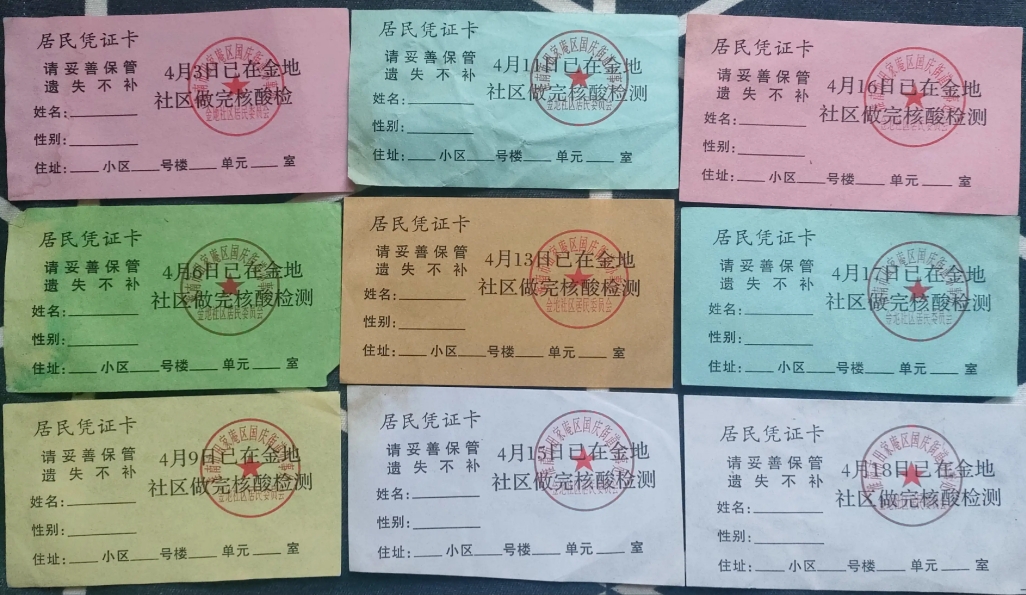 居民凭证卡
请妥善保管
遗失不补
4月3日已在金地
社区做完核酸检
姓名:
性别:
住址: 小区 号楼 单元 室
金地社区居民委员会
居民凭证卡
请妥善保管
遗失不补
4月11日已在金地
社区做完核酸检测
姓名:
性别:
住址: 小区 号楼 单元 室
金地社区居民委员会
居民凭证卡
请妥善保管
遗失不补
4月16日已在金地
社区做完核酸检测
姓名:
性别:
住址: 小区 号楼 单元 室
金地社区居民委员会
居民凭证卡
请妥善保管
遗失不补
4月6日已在金地
社区做完核酸检测
姓名:
性别:
住址: 小区 号楼 单元 室
金地社区居民委员会
居民凭证卡
请妥善保管
遗失不补
4月13日已在金地
社区做完核酸检测
姓名:
性别:
住址: 小区 号楼 单元 室
金地社区居民委员会
居民凭证卡
请妥善保管
遗失不补
4月17日已在金地
社区做完核酸检测
姓名:
性别:
住址: 小区 号楼 单元 室
金地社区居民委员会
居民凭证卡
请妥善保管
遗失不补
4月9日已在金地
社区做完核酸检测
姓名:
性别:
住址: 小区 号楼 单元 室
金地社区居民委员会
居民凭证卡
请妥善保管
遗失不补
4月15日已在金地
社区做完核酸检测
姓名:
性别:
住址: 小区 号楼 单元 室
金地社区居民委员会
居民凭证卡
请妥善保管
遗失不补
4月18日已在金地
社区做完核酸检测
姓名:
性别:
住址: 小区 号楼 单元 室
金地社区居民委员会